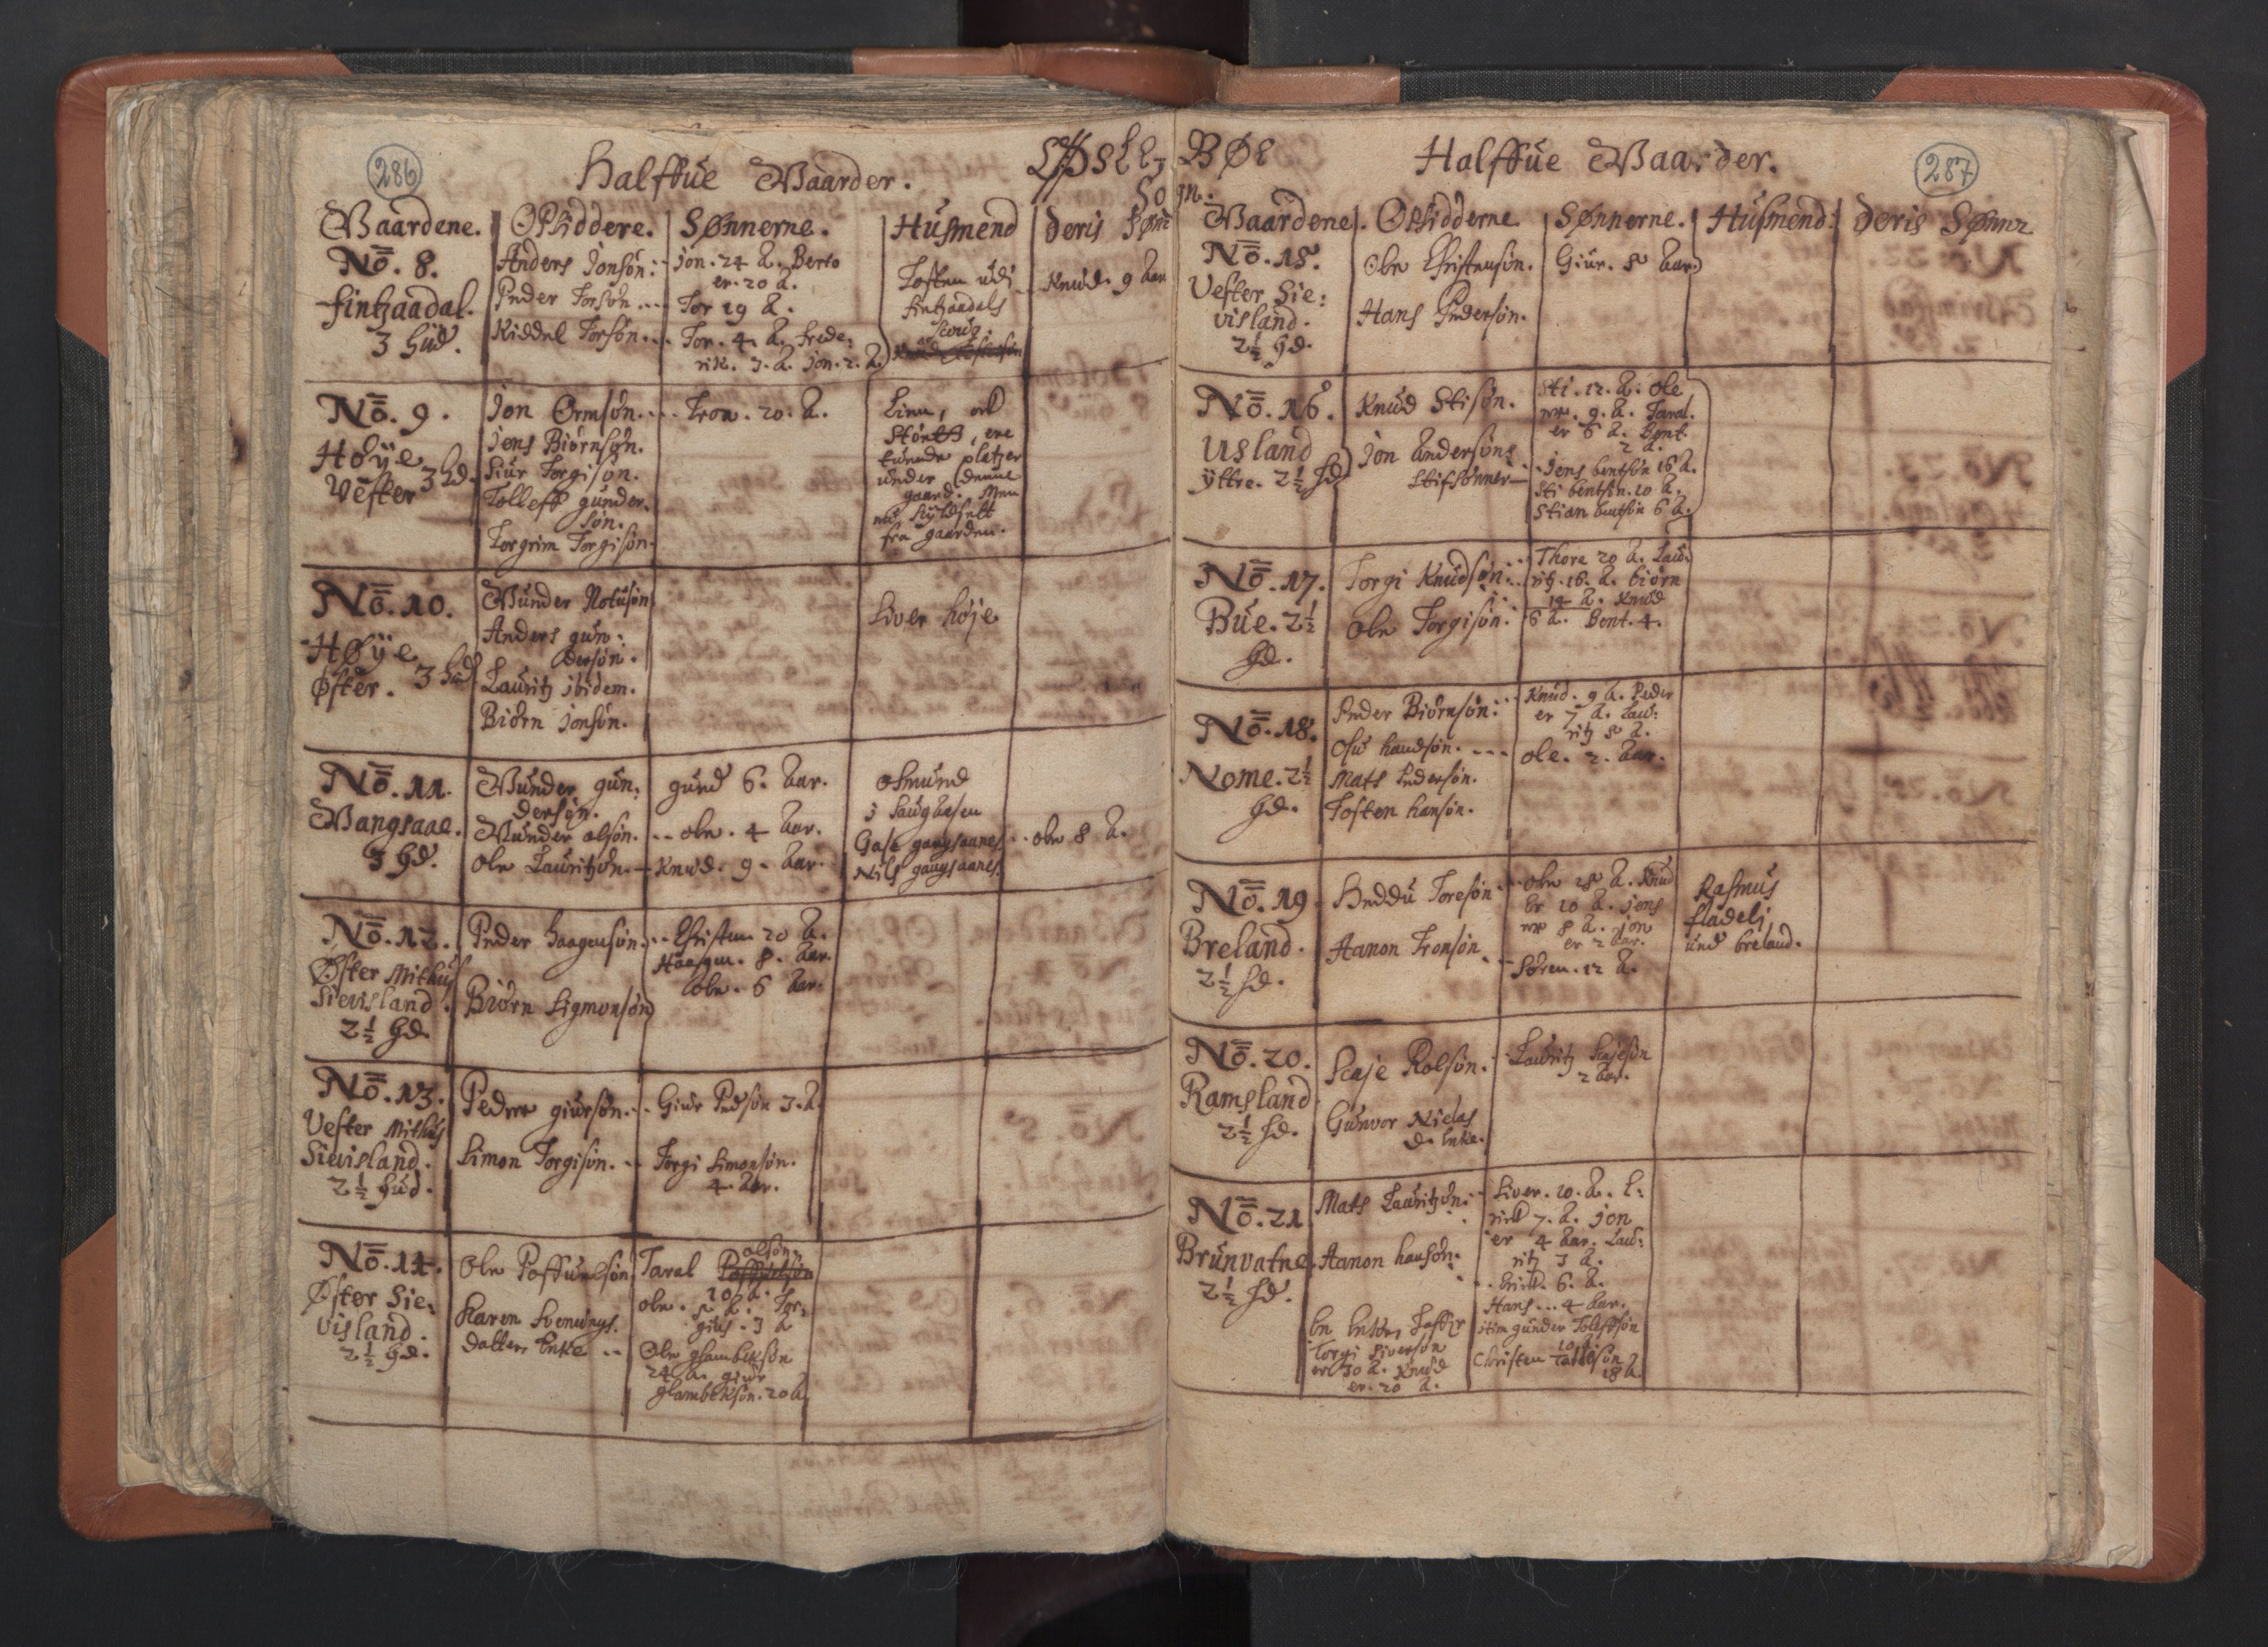 286
Halffue Gaarder.
Gaardene. Opsiddere. Sønnerne. Husmend Deris Sønn
No. 8.
fintzaadal.
3 hud.
Anders Jonsøn:
Peder Torsøn...
Kiddel Torsøn...
jon. 24 A. Bero
er. 20 A.
Tor 19 A.
Tor. 4 A. frede:
rik. 3. A. jon. 2. A.
Tosten udi
fintzaadals
Knud. 9 Aar
No. 9.
Høÿe
Vester 3 hd.
Jon Ormsøn...
Jens Biørnsøn.
Siur Torgisøn.
Tolleff gunder:
søn.
Torgrim Torgisøn.
Tron. 20. A.
Lien, od
ere
tuende platzer
under denne
gaard. Men
fra gaarden.
No. 10.
Høÿe
Øster. 3 hud
Gunder Notusøn
Anders gun:
dersøn.
Lauritz ibidem.
Biørn jonsøn.
Siver høje
No. 11.
Gangsaae.
3 hd.
Gunder gun:
dersøn.
Gunder olsøn.
Ole Lauritzøn.
gund 6. Aar.
ole. 4 Aar.
Knud. 9. Aar.
Osmund
i Haughasen
gangsaanes
Nils gangsaanes.
ole 8 A.
No. 12.
Øster Mithus
Sievisland.
2½ hd.
Peder Haagensøn...
Biørn Sigmonsøn
Christen 20 A.
Haagen. 8. Aar.
ole. 6 Aar.
No. 13.
Vester Mithus
Sievisland.
2½ hud.
Peder giursøn...
Simon Torgisøn...
Giur Pedsøn 3. A.
Torgi Simonsøn.
4. Aar.
No. 14.
Øster Sie:
visland.
2½ hd.
Ole Poffuelsøn
Karen Svenings.
datter, Enke ..
olsøn.
Taral Poffuelsøn
10 A.
ole. 5 A. Tor:
gius. 3 A
Ole glambeksøn
24 A. giur
glambeksøn. 20 A.
287
Halffue Gaarder.
Gaardene. Opsidderne. Sønnerne. Husmend: Deris Sønner
No. 15.
Vester Sie:
visland.
2½ hd.
Ole Christensøn.
Hans Pedersøn.
Giur. 5 Aar
No. 16.
Usland
ÿttre. 2½ hd
Knud Stisøn.
Jon Andersøns
Stifsønner
Sti. 12. A. Ole
9. A. Taral.
er 6 A. Bent
2 A.
Jens bentsøn 16 A.
Sti bentsøn. 10 A.
Stian bentsøn 6 A.
No. 17.
Bue. 2½
hd.
Torgi Knudsøn...
Ole Torgisøn.
Thore 20 A. Lau:
ritz. 16. A. biørn
14 A. Knud
6 A. Bent. 4.
No. 18.
Nome. 2½
hd.
Peder Biørnsøn:
Mats Pedersøn.
Tosten hansøn.
Knud. 9 A. Peder
er 7 A. Lau:
ritz 5 A.
ole. 2. Aar.
No. 19.
Breland.
2½ hd.
Heddu Toresøn
Aanon Tronsøn
Knud
er 10 A. jens
8 A. jon
er 2 Aar.
Søren. 12 A.
Rasmus
fladeli
und breland.
No. 20.
Ramsland
2½ hd.
Scaje Rolsøn.
Gunvor Niclas
D. Enke.
Lauritz Scajesøn
2 Aar.
No. 21
Brunvatne.
2½ hd.
Mats Lauritzøn.
Aanon hansøn.
Torgi Siversøn
er 30 A. Knud
er. 20 A.
Siver. 10. A. E:
rick 7. A. jon
er 4 Aar. Lau:
ritz 3 A.
Erick. 6. A.
Hans... 4 Aar.
item gunder Tolefsøn
10 A.
Christen
18 A